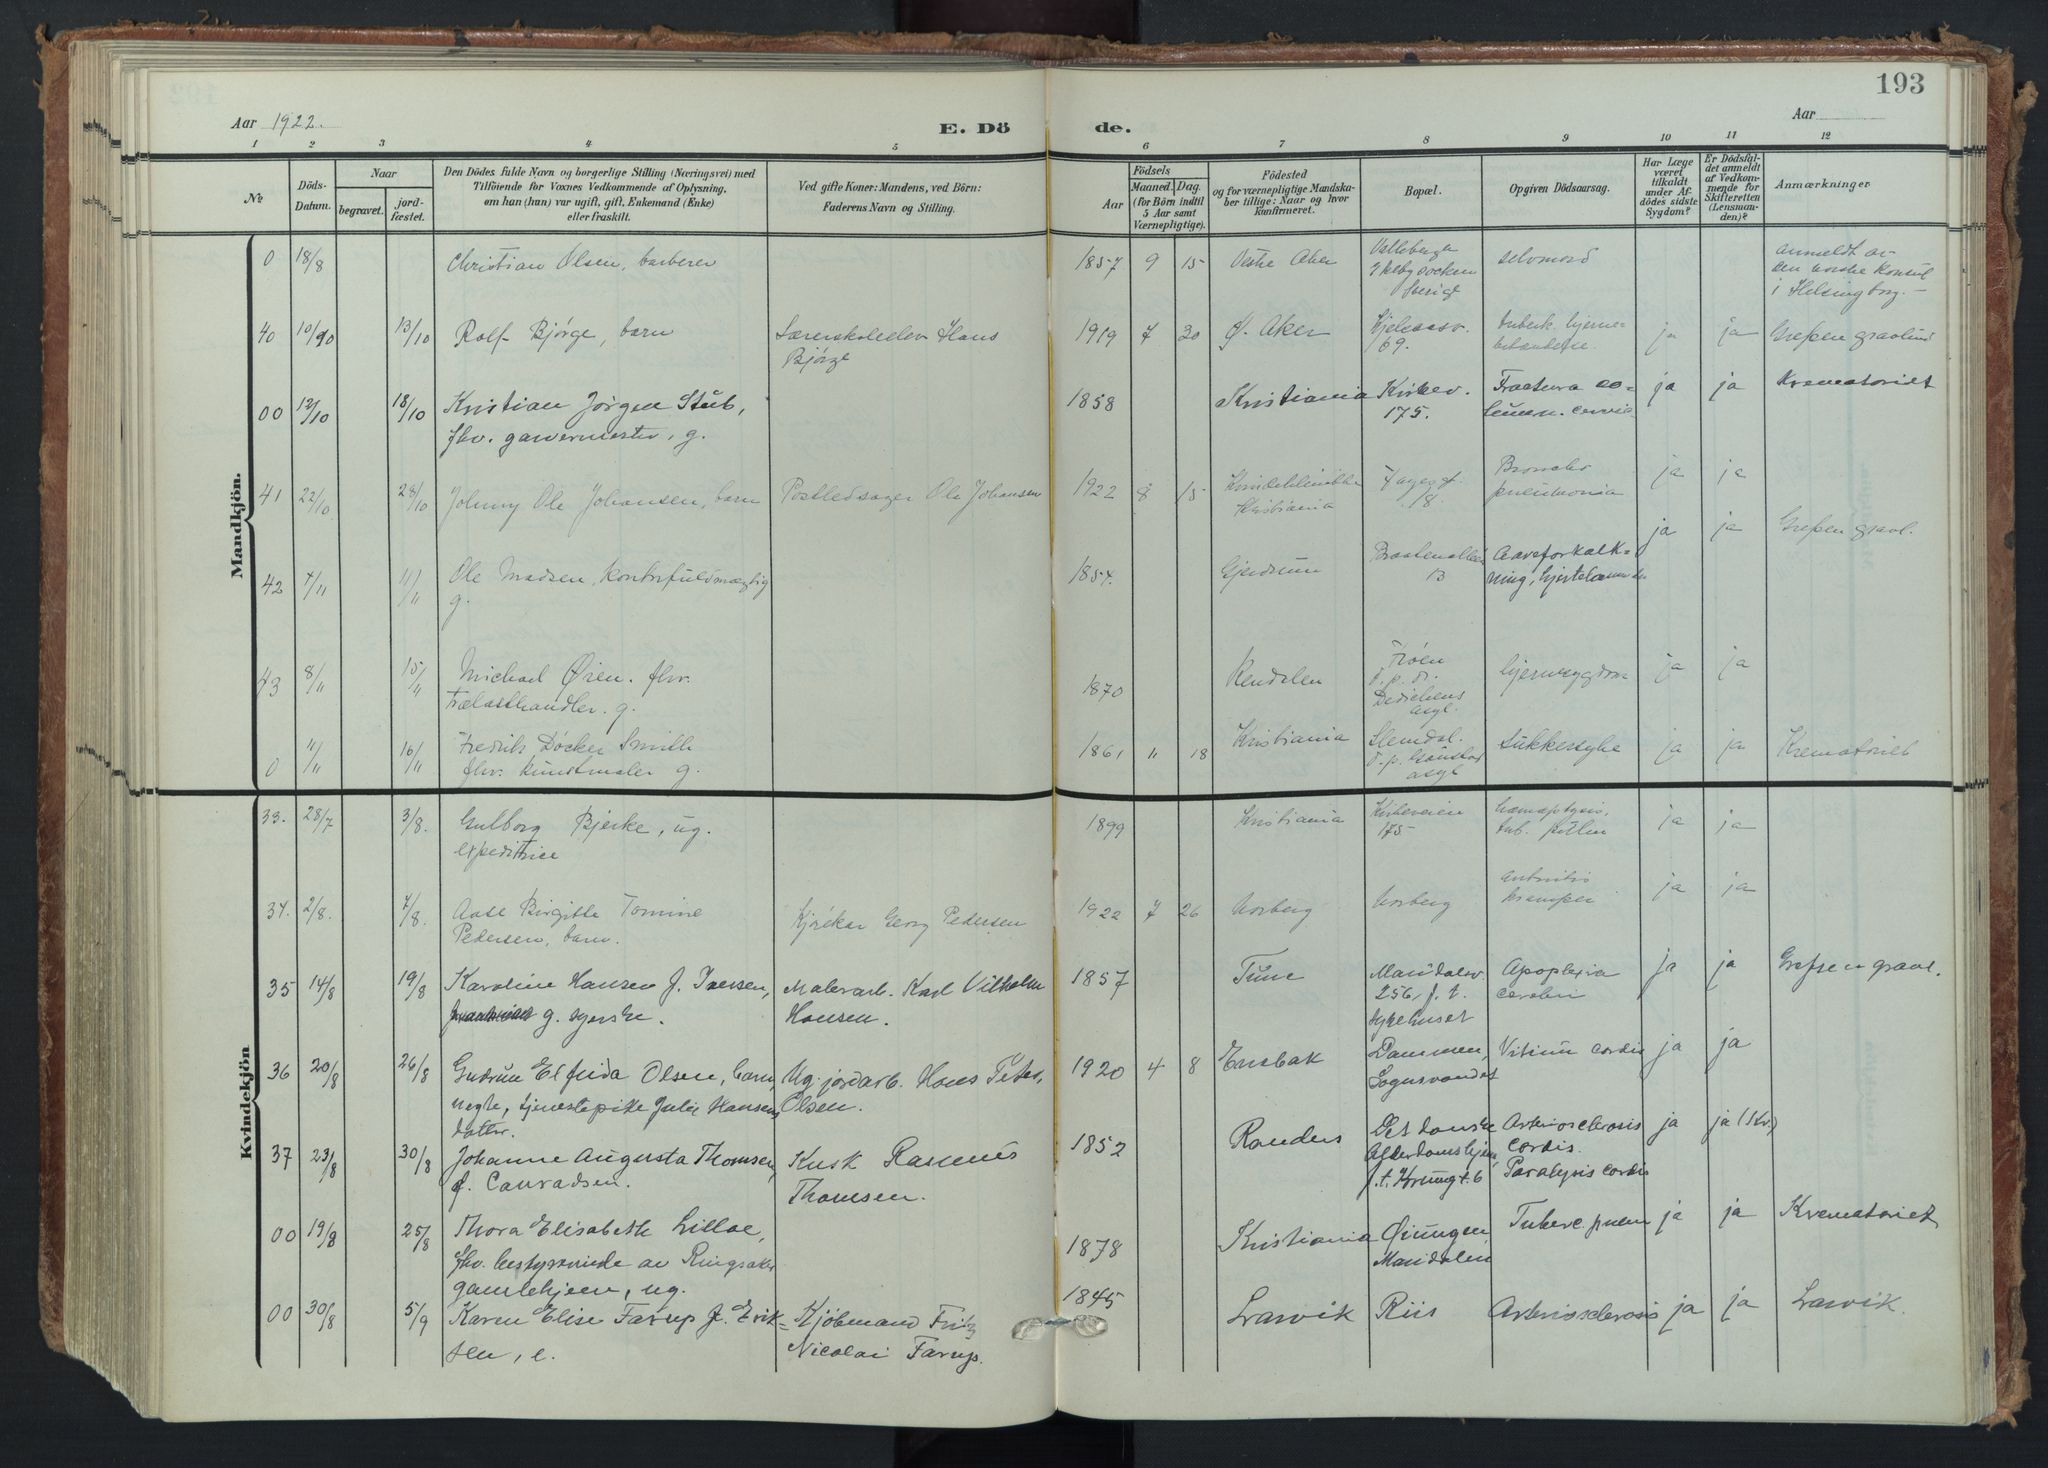 193
Aar 1922.
E. Dö
de.
Aar
1 2 3 4 5 6 7 8 9 10 11 12
No.
Döds-Datum.
Naar
begravet.
jord-fæstet.
Den Dödes fulde Navn og borgerlige Stilling (Næringsvei) med
Tilföiende for Voxnes Vedkommende af Oplysning,
om han (hun) var ugift, gift, Enkemand (Enke)
eller fraskilt.
Ved gifte Koner: Mandens, ved Börn:
Faderens Navn og Stilling.
Födsels
Aar
Maaned. Dag.
(for Börn indtil
5 Aar samt
Værnepligtige).
Födested
og for værnepligtige Mandska-
ber tillige: Naar og hvor
konfirmeret.
Bopæl.
Opgiven Dödsaarsag.
Har Læge
været
tilkaldt
under Af-
dödes sidste
Sygdom?
Er Dödsfal-
det anmeldt
af Vedkom-
mende for
Skifteretten
(Lensman-
den)?
Anmærkninger
Mandkjön.
0 18/8 Christian Olsen, barberer 1857 9 15 Vestre Aker selvmord
i Helsingborg.
40 13/10 Rolf Bjørge, barn Hans
Bjørge 1919 7 20 Ø. Aker 69. ja ja Grefsen gravlund
00 12/10 18/10 Kristian Jørgen Stub,
fhv. garvermester, g. 1858 Kristiania Kirkev.
175. Fractura co-
lumn. cervic ja ja Krematoriet
41 22/10 28/10 Johnny Ole Johansen, barn Postledsager Ole Johansen 1922 8 15 Kristiania Broncho
pneumonia ja ja
42 4/11 11/11 Ole Madsen, kontorfuldmægtig
g. 1854. Gjerdrum 13 Aareforkalk-
ning, ja ja Grefsen gravl.
43 8/11 15/11 Michael Øien. fhv.
Trælasthandler. g. 1870 Rendalen Frøen
Dedichens
asyl. hjernesygdom ja ja
0 11/11 16/11 Fredrik Døcker Smith
fhv. kunstmaler g. 1861 11 18 Kristiania Slemdal.
asyl sukkersyke ja ja Krematoriet
Kvindekjön
33. 28/7 3/8. Gulborg Bjerke, ug.
expeditrice 1899 Kristiania Kirkeveien
175 hæmoptysis,
tub. pulm ja ja
34. 2/8. 7/8. Aase Birgitte Tomine
Pedersen, barn. Georg Pedersen 1922 7 26 Norberg Norberg kramper ja ja
35 14/8 19/8 Karoline Hansen f. Iversen,
g. syerske. Malerarb. Karl Vilhelm
Hansen. 1857 Tune Maridalsv.
256, f. t.
sykehuset Apoplexia
cerebri ja ja Grefsen gravl.
36 20/8 26/8 Gudrun Elfrida Olsen, barn,
uegte, tjenestepike Julie Hansens
datter. Ug. jordarb. Hans Peter
Olsen. 1920 4 8 Enebak Dammen,
Sognsvandet Vitium cordis ja ja
37 23/8 30/8 Johanne Augusta Thomsen,
f. Conradsen. Kusk Rasmus
Thomsen. 1852 Randers Det danske
Alderdomshjem,
Arteriosclerosis
cordis.
Paralysis cordis ja ja (Kr.)
00 19/8 25/8 Thora Elisabeth Lilloe,
fhv. bestyrerinde av Ringsaker
gamlehjem, ug. 1878 Kristiania Øiungen
Maridalen Tuberc. pulm ja ja Krematoriet
00 30/8 5/9 Karen Elise Farup f. Erik-
sen, e. Kjøbmand Fritz
Nicolai Farup. 1845 Larvik Riis Arteriosclerosis ja ja Larvik.